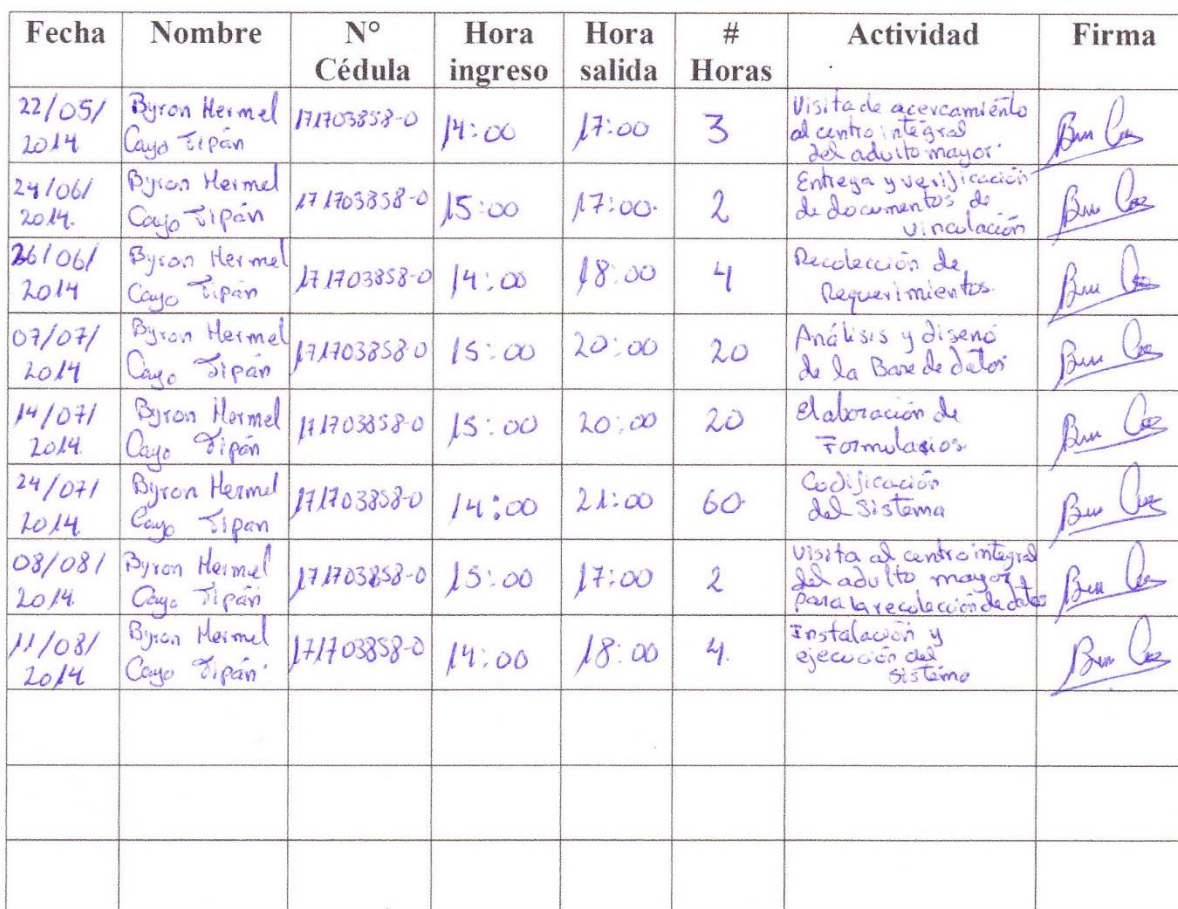 Fecha Nombre N° Cédula Hora ingreso Hora salida # Horas Actividad Firma
22/05/2014 Byron Hermel Cayo Tipán 171703858-0 14:00 17:00 3 Visita de acercamiento al centro integral del adulto mayor.
24/06/2014. Byron Hermel Cayo Tipán 171703858-0 15:00 17:00. 2 Entrega y verificación de documentos de vinculación
26/06/2014 Byron Hermel Cayo Tipán 171703858-0 14:00 18:00 4 Recolección de Requerimientos.
07/07/2014 Byron Hermel Cayo Tipán 171703858-0 15:00 20:00 20 Análisis y diseño de la Base de datos
14/07/2014. Byron Hermel Cayo Tipán 171703858-0 15:00 20:00 20 Elaboración de Formularios
24/07/2014. Byron Hermel Cayo Tipan 171703858-0 14:00 21:00 60 Codificación del Sistema
08/08/2014. Byron Hermel Cayo Tipán 171703858-0 15:00 17:00 2 Visita al centro integral del adulto mayor para la recolección de datos
11/08/2014 Byron Hermel Cayo Tipán 171703858-0 14:00 18:00 4. Instalación y ejecución del sistema